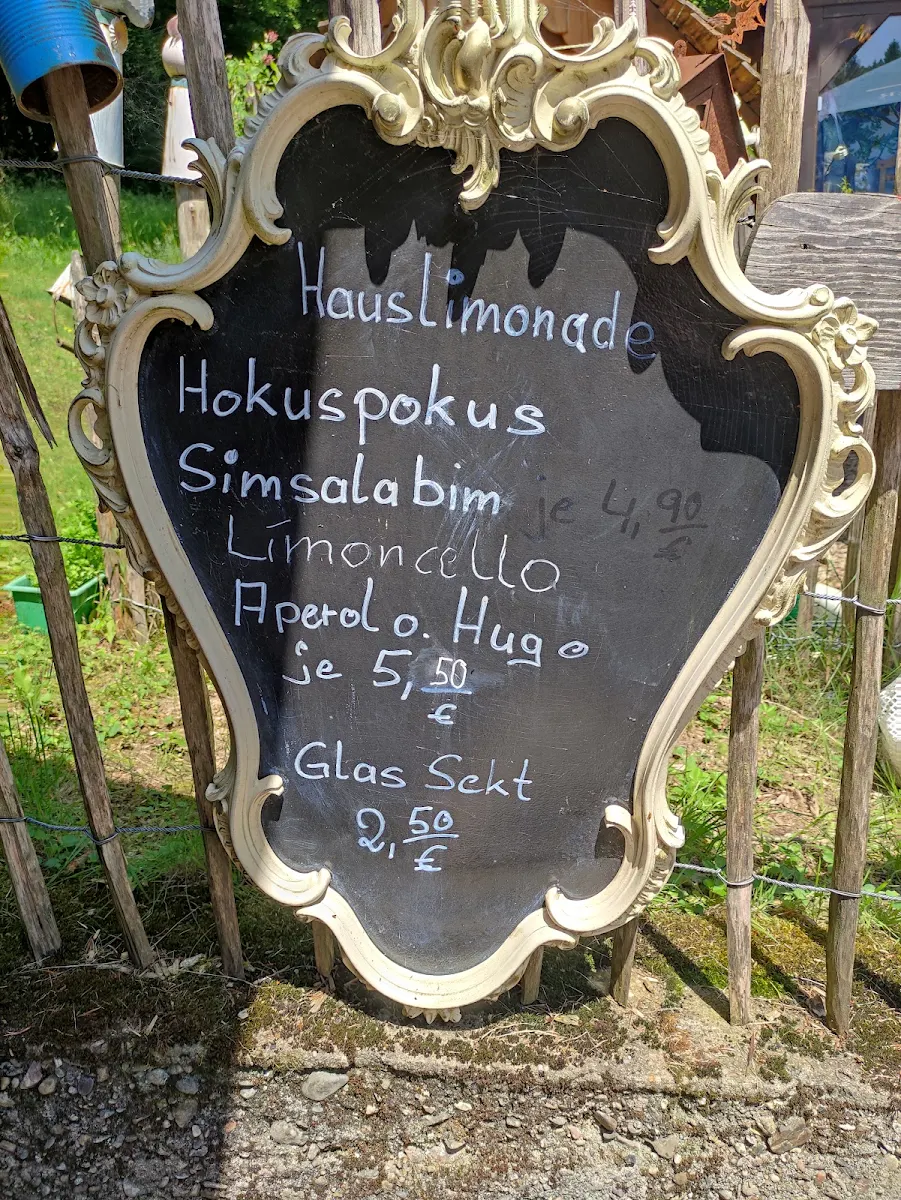 Hauslimonade
Hokuspokus
Simsalabim je 4,90 €
Limoncello
Aperol o. Hugo
je 5,50 €
Glas Sekt
2,50 €